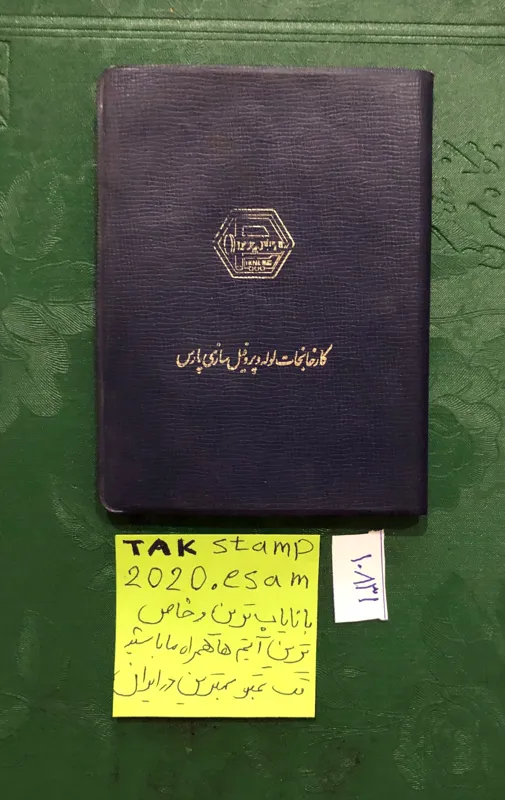 کارخانجات لوله و پروفیل سازی پارس
TAK stamp
2020.esam
با نایاب ترین و خاص
ترین آیتم ها همراه ما باشید
تک تمبر بهترین در ایران